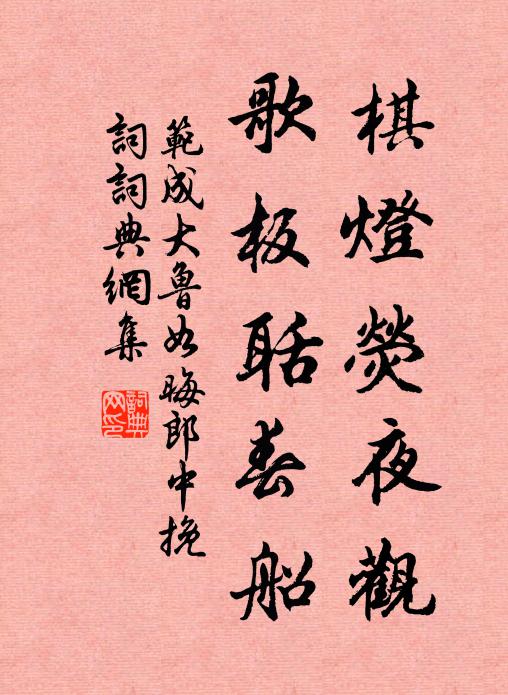 棋燈熒夜觀
歌板聒春船
範成大魯如晦郎中挽
詞詞典網集
詞典网印